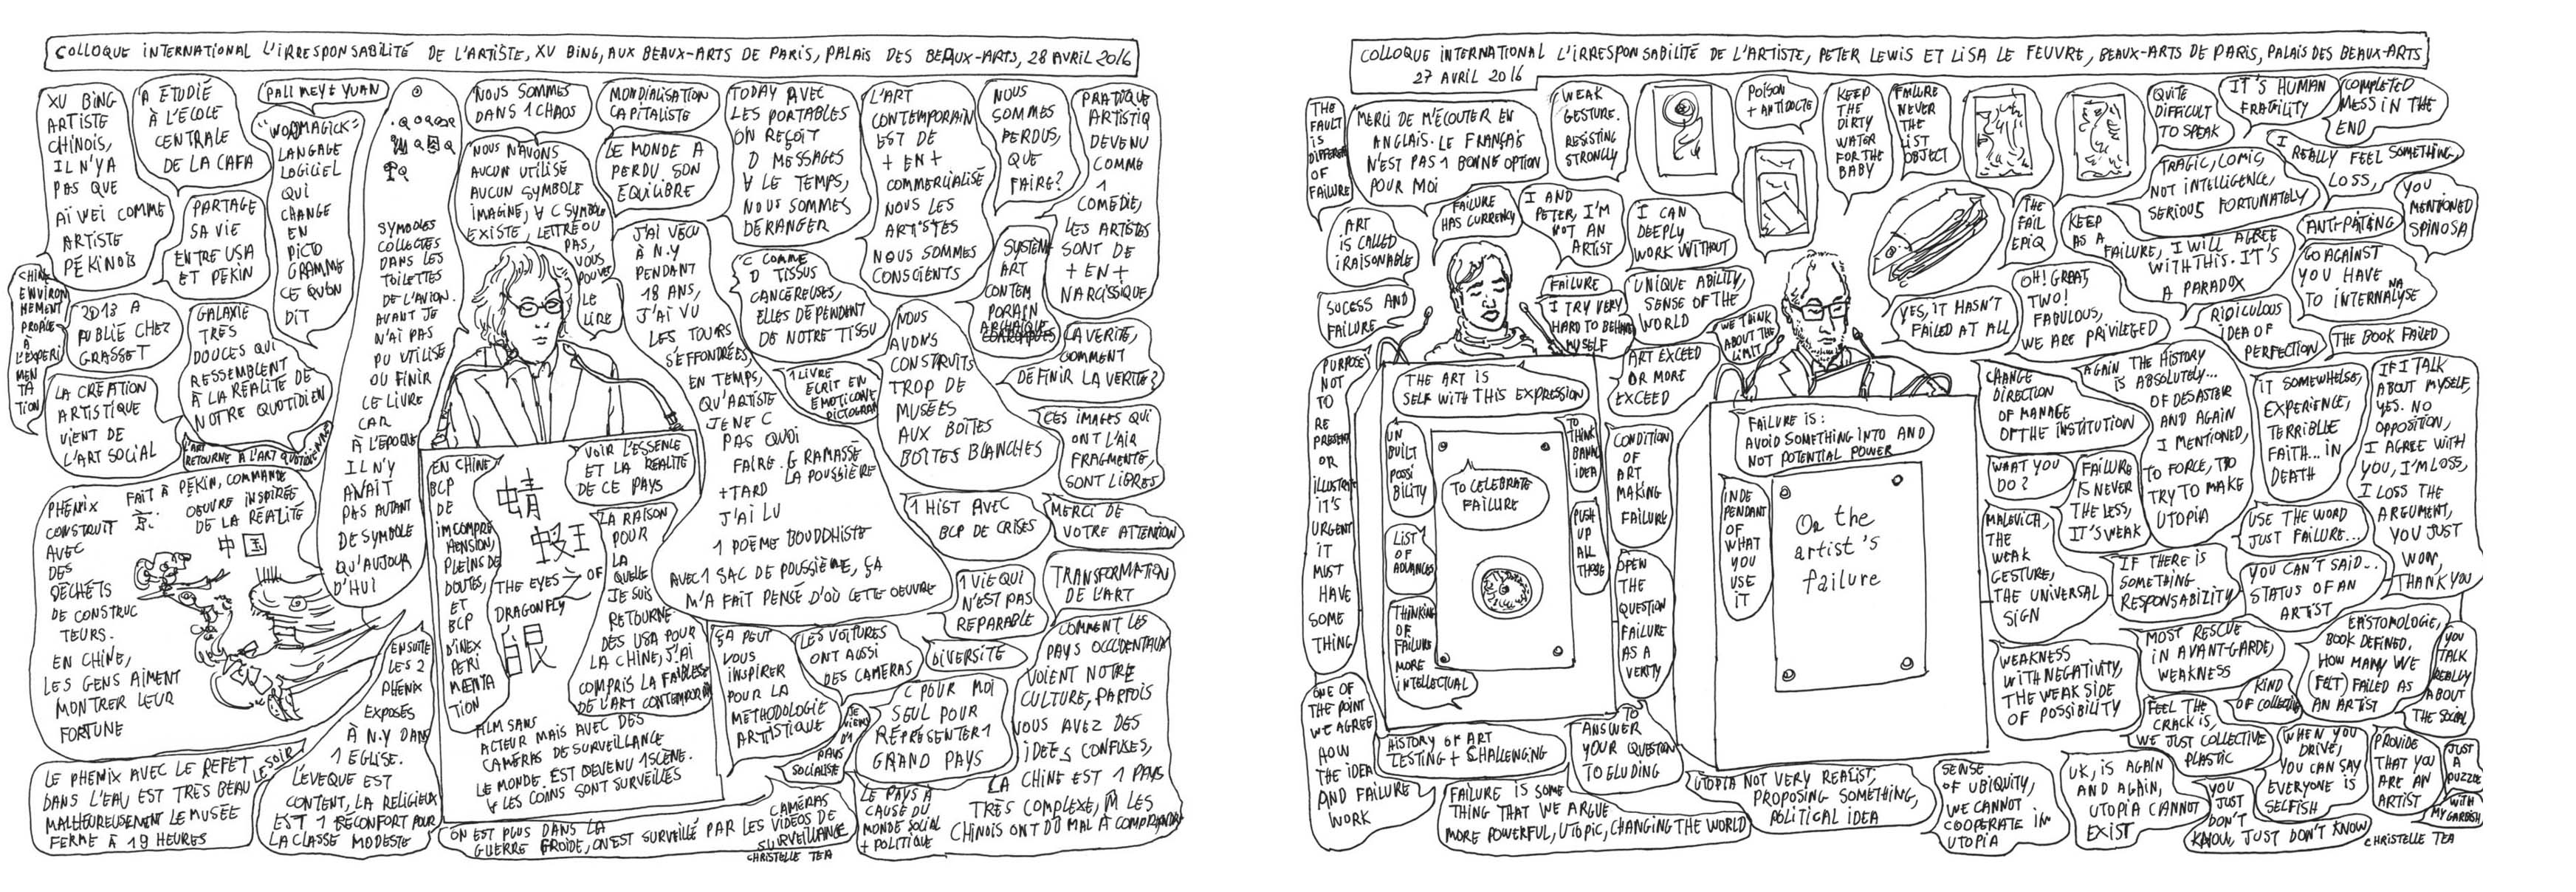 COLLOQUE INTERNATIONAL L'IRRESPONSABILITÉ DE L'ARTISTE, XU BING, AUX BEAUX-ARTS DE PARIS, PALAIS DES BEAUX-ARTS, 28 AVRIL 2016
XU BING
ARTISTE
CHINOIS,
IL N'Y A
PAS QUE
AÏ VEI COMME
ARTISTE
PÉKINOIS
A ÉTUDIÉ
À L'ÉCOLE
CENTRALE
DE LA CAFA
PARTAGE
SA VIE
ENTRE USA
ET PÉKIN
CHINE
ENVIRON
NEMENT
PROPICE
À
L'EXPERI
MEN
TA
TION
2013 A
PUBLIÉ CHEZ
GRASSET
LA CRÉATION
ARTISTIQUE
VIENT DE
L'ART SOCIAL
GALAXIE
TRÈS
DOUCES QUI
RESSEMBLENT
À LA RÉALITÉ DE
NOTRE QUOTIDIEN
L'ART
RETOURNE À L'ART QUOTIDIENNE
"WORDMAGICK"
LANGAGE
LOGICIEL
QUI
CHANGE
EN
PICTO
GRAMME
CE QU'ON
DIT
SYMBOLES
COLLECTÉS
DANS LES
TOILETTES
DE L'AVION.
AVANT JE
N'AI PAS
PU UTILISÉ
OU FINIR
LE LIVRE
CAR
À L'ÉPOQUE
IL N'Y
AVAIT
PAS AUTANT
DE SYMBOLE
QU'AUJOUR
D'HUI
NOUS SOMMES
DANS 1 CHAOS
NOUS N'AVONS
AUCUN UTILISÉ
AUCUN SYMBOLE
IMAGINÉ, ∀ C SYMBOLE
EXISTE, LETTRÉ OU
PAS,
VOUS
POUVEZ
LE
LIRE
MONDIALISATION
CAPITALISTE
LE MONDE A
PERDU SON
EQUILIBRE
J'AI VÉCU
À N.Y
PENDANT
18 ANS,
J'AI VU
LES TOURS
S'EFFONDRÉES,
EN TEMPS,
QU'ARTISTE
JE NE C
PAS QUOI
FAIRE. G RAMASSÉ
LA POUSSIÈRE
+ TARD
J'AI LU
1 POÈME BOUDDHISTE
AVEC 1 SAC DE POUSSIÈRE, ÇA
M'A FAIT PENSÉ D'OÙ CETTE OEUVRE
TODAY AVEC
LES PORTABLES
ON REÇOIT
D MESSAGES
∀ LE TEMPS,
NOUS SOMMES
DERANGER
C COMME
D TISSUS
CANCÉREUSES,
ELLES DÉPENDENT
DE NOTRE TISSU
1 LIVRE
ECRIT EN
ÉMOTICONE
PICTOGRAM
L'ART
CONTEMPORAIN
EST DE
+ EN +
COMMERCIALISÉ
NOUS LES
ARTISTES
NOUS SOMMES
CONSCIENTS
NOUS
AVONS
CONSTRUITS
TROP DE
MUSÉES
AUX BOÎTES
BOÎTES BLANCHES
NOUS
SOMMES
PERDUS,
QUE
FAIRE?
SYSTEM
ART
CONTEM
PORAIN
ARCHAÏQUE
PRATIQUE
ARTISTIQ
DEVENU
COMME
1
COMÉDIE,
LES ARTISTES
SONT DE
+ EN +
NARCISSIQUE
LA VERITÉ,
COMMENT
DÉFINIR LA VÉRITÉ?
CES IMAGES QUI
ONT L'AIR
FRAGMENTÉ,
SONT LIBRES
1 HIST AVEC
BCP DE CRISES
MERCI DE
VOTRE ATTENTION
1 VIE QUI
N'EST PAS
REPARABLE
TRANSFORMATION
DE L'ART
PHENIX
CONSTRUIT
AVEC
DES
DÉCHETS
DE CONSTRUC
TEURS.
EN CHINE,
LES GENS AIMENT
MONTRER LEUR
FORTUNE
FAIT À PEKIN, COMMANDE
OEUVRE INSPIRÉE
DE LA RÉALITÉ
中国
LE PHENIX AVEC LE REFET
DANS L'EAU EST TRÈS BEAU LE SOIR
MALHEUREUSEMENT LE MUSÉE
FERME À 19 HEURES
ENSUITE
LES 2
PHENIX
EXPOSÉS
À N.Y DANS
1 EGLISE.
L'ÉVEQUE EST
CONTENT, LA RELIGIEUX
EST 1 RÉCONFORT POUR
LA CLASSE MODESTE
EN CHINE
BCP
DE
INCOMPRE
HENSION,
PLEINS DE
DOUTES,
ET
BCP
D'INEX
PERI
MENTA
TION
蜻
蜓
THE EYES OF
之
DRAGONFLY
眼
VOIR L'ESSENCE
ET LA RÉALITÉ
DE CE PAYS
LA RAISON
POUR
LA
QUELLE
JE SUIS
RETOURNÉ
DES USA POUR
LA CHINE, J'AI
COMPRIS LA FAIBLESSE
DE L'ART CONTEMPORAIN
FILM SANS
ACTEUR MAIS AVEC DES
CAMÉRAS DE SURVEILLANCE
LE MONDE EST DEVENU 1 SCÈNE.
∀ LES COINS SONT SURVEILLÉS
ÇA PEUT
VOUS
INSPIRER
POUR LA
METHODOLOGIE
ARTISTIQUE
LES VOITURES
ONT AUSSI
DES CAMERAS
DIVERSITÉ
JE
VIENS
D'1
PAYS
SOCIALISE
C POUR MOI
SEUL POUR
REPRÉSENTER 1
GRAND PAYS
COMMENT LES
PAYS OCCIDENTAUX
VOIENT NOTRE
CULTURE, PARFOIS
VOUS AVEZ DES
IDÉES CONFUSES,
LA CHINE EST 1 PAYS
TRÈS COMPLEXE, M LES
CHINOIS ONT DU MAL À COMPRENDRE
ON EST PLUS DANS LA
GUERRE FROIDE, ON EST SURVEILLÉ PAR LES VIDÉOS DE
CAMÉRAS
SURVEILLANCE
LE PAYS À
CAUSE DU
MONDE SOCIAL
+ POLITIQUE
CHRISTELLE TEA
COLLOQUE INTERNATIONAL L'IRRESPONSABILITÉ DE L'ARTISTE, PETER LEWIS ET LISA LE FEUVRE, BEAUX-ARTS DE PARIS, PALAIS DES BEAUX-ARTS
27 AVRIL 2016
THE
FAULT
IS
DIFFEREN
OF
FAILURE
MERCI DE M'ÉCOUTER EN
ANGLAIS. LE FRANÇAIS
N'EST PAS 1 BONNE OPTION
POUR MOI
WEAK
GESTURE.
RESISTING
STRONGLY
POISON
+ ANTIDOTE
KEEP
THE
DIRTY
WATER
FOR THE
BABY
FAILURE
NEVER
THE
LIST
OBJECT
QUITE
DIFFICULT
TO SPEAK
IT'S HUMAN
FRAGILITY
COMPLETED
MESS IN THE
END
TRAGIC, COMIC,
NOT INTELLIGENCE,
SERIOUS FORTUNATELY
I REALLY FEEL SOMETHING,
LOSS,
YOU
MENTIONED
SPINOSA
ART
IS CALLED
IRAISONABLE
FAILURE
HAS CURRENCY
I AND
PETER, I'M
NOT AN
ARTIST
I CAN
DEEPLY
WORK WITHOUT
THE
FAIL
EPIQ
KEEP
AS A
FAILURE, I WILL AGREE
WITH THIS. IT'S
A PARADOX
GO AGAINST
YOU HAVE
TO INTERNALYSE
SUCESS AND
FAILURE
FAILURE
I TRY VERY
HARD TO BEHING
MYSELF
UNIQUE ABILITY,
SENSE OF THE
WORLD
WE THINK
ABOUT THE
LIMIT
ART EXCEED
OR MORE
EXCEED
YES, IT HASN'T
FAILED AT ALL
OH! GREAT,
TWO!
FABULOUS,
WE ARE PRIVILEGED
RIDICULOUS
IDEA OF
PERFECTION
THE BOOK FAILED
PURPOSE
NOT
TO
RE
PRESENT
OR
ILLUSTRATE
IT'S
URGENT
IT
MUST
HAVE
SOME
THING
ONE OF
THE POINT
WE AGREE
HOW
THE IDEA
AND FAILURE
WORK
THE ART IS
SELF WITH THIS EXPRESSION
UN
BUILT
POSSI
BILITY
LIST
OF
ADVANCES
THINKING
OF
FAILURE
MORE
INTELLECTUAL
TO CELEBRATE
FAILURE
TO
THINK
BANAL
IDEA
PUSH
UP
ALL
THOSE
CONDITION
OF
ART
MAKING
FAILURE
OPEN
THE
QUESTION
FAILURE
AS A
VERITY
FAILURE IS:
AVOID SOMETHING INTO AND
NOT POTENTIAL POWER
INDE
PENDANT
OF
WHAT
YOU
USE
IT
On the
artist's
failure
CHANGE
DIRECTION
OF MANAGE
OF THE INSTITUTION
WHAT YOU
DO?
FAILURE
IS NEVER
THE LESS,
IT'S WEAK
AGAIN THE HISTORY
IS ABSOLUTELY...
OF DESASTER
AND AGAIN
I MENTIONED,
TO FORCE, TOO
TRY TO MAKE
UTOPIA
IT SOMEWHELSE,
EXPERIENCE,
TERRIBLE
FAITH... IN
DEATH
IF I TALK
ABOUT MYSELF,
YES. NO
OPPOSITION,
I AGREE WITH
YOU, I'M LOSS,
I LOSS THE
ARGUMENT,
YOU JUST
WON,
THANK YOU
MALEVICH,
THE
WEAK
GESTURE,
THE UNIVERSAL
SIGN
USE THE WORD
JUST FAILURE...
IF THERE IS
SOMETHING
RESPONSABIZITY
YOU CAN'T SAID...
STATUS OF AN
ARTIST
WEAKNESS
WITH NEGATIVITY,
THE WEAK SIDE
OF POSSIBILITY
MOST RESCUE
IN AVANT-GARDE,
WEAKNESS
EPISTOMOLOGIE,
BOOK DEFINED,
HOW MANY WE
(FELT) FAILED AS
AN ARTIST
YOU
TALK
REALLY
ABOUT
THE SOCIAL
KIND
OF COLLECTIVE
FEEL THE
CRACK IS,
WE JUST COLLECTIVE
PLASTIC
HISTORY OF ART
TESTING + CHALLENGING
TO
ANSWER
YOUR QUESTION
TO ELUDING
FAILURE IS SOME
THING THAT WE ARGUE
MORE POWERFUL, UTOPIC, CHANGING THE WORLD
UTOPIA NOT VERY REALIST,
PROPOSING SOMETHING,
POLITICAL IDEA
SENSE
OF UBIQUITY,
WE CANNOT
COOPERATE IN
UTOPIA
UK, IS AGAIN
AND AGAIN,
UTOPIA CANNOT
EXIST
WHEN YOU
DRIVE,
YOU CAN SAY
EVERYONE IS
SELFISH
PROVIDE
THAT YOU
ARE AN
ARTIST
JUST
A
PUZZLE
WITH
MY GARBISH
YOU
JUST
DON'T
KNOW, JUST DON'T KNOW
CHRISTELLE TEA